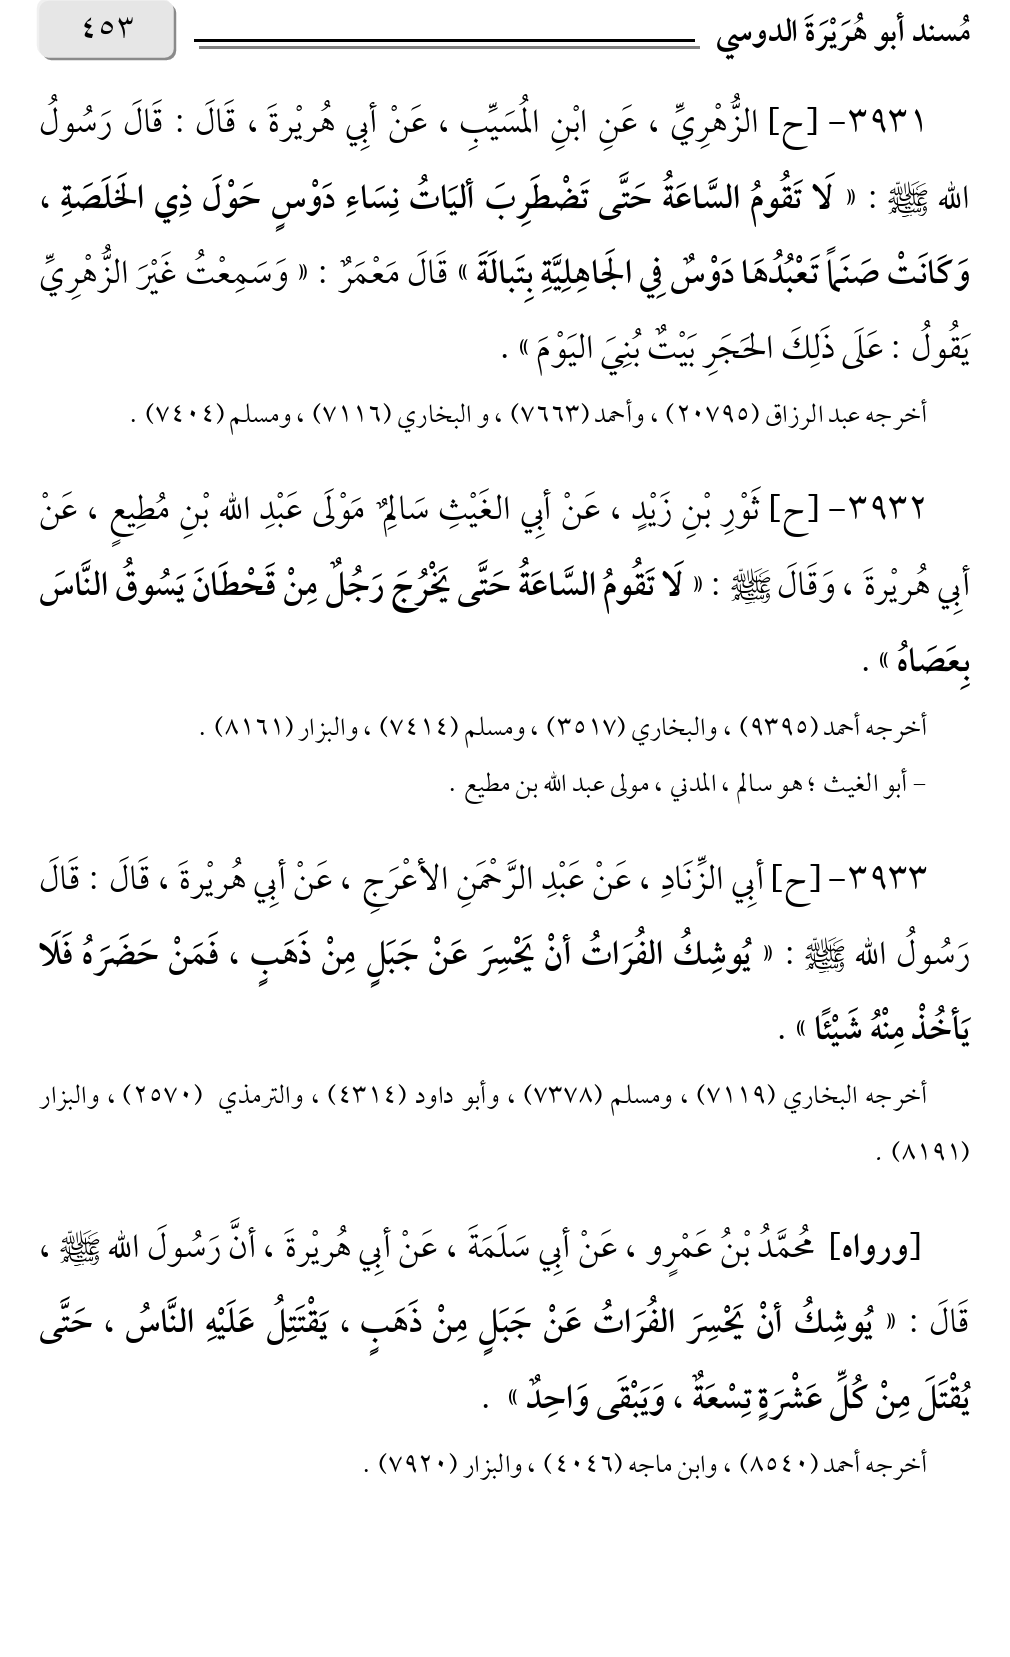 مُسند أبو هُرَيْرَةَ الدوسي ٤٥٣
٣٩٣١- [ح] الزُّهْرِيِّ ، عَنِ ابْنِ المُسَيِّبِ ، عَنْ أبِي هُريْرةَ ، قَالَ : قَالَ رَسُولُ
الله ﷺ : « لَا تَقُومُ السَّاعَةُ حَتَّى تَضْطَرِبَ أليَاتُ نِسَاءِ دَوْسٍ حَوْلَ ذِي الخَلَصَةِ ،
وَكَانَتْ صَنَماً تَعْبُدُهَا دَوْسٌ فِي الجَاهِلِيَّةِ بِتَبالَةَ » قَالَ مَعْمَرٌ : « وَسَمِعْتُ غَيْرَ الزُّهْرِيِّ
يَقُولُ : عَلَى ذَلِكَ الحَجَرِ بَيْتٌ بُنِيَ اليَوْمَ » .
أخرجه عبد الرزاق (٢٠٧٩٥) ، وأحمد (٧٦٦٣) ، و البخاري (٧١١٦) ، ومسلم (٧٤٠٤) .
٣٩٣٢- [ح] ثَوْرِ بْنِ زَيْدٍ ، عَنْ أبِي الغَيْثِ سَالِمٌ مَوْلَى عَبْدِ الله بْنِ مُطِيعٍ ، عَنْ
أبِي هُريْرةَ ، وَقَالَ ﷺ : « لَا تَقُومُ السَّاعَةُ حَتَّى يَخْرُجَ رَجُلٌ مِنْ قَحْطَانَ يَسُوقُ النَّاسَ
بِعَصَاهُ » .
أخرجه أحمد (٩٣٩٥) ، والبخاري (٣٥١٧) ، ومسلم (٧٤١٤) ، والبزار (٨١٦١) .
– أبو الغيث ؛ هو سالم ، المدني ، مولى عبد الله بن مطيع .
٣٩٣٣- [ح] أبِي الزِّنَادِ ، عَنْ عَبْدِ الرَّحْمَنِ الأعْرَجِ ، عَنْ أبِي هُريْرةَ ، قَالَ : قَالَ
رَسُولُ الله ﷺ : « يُوشِكُ الفُرَاتُ أنْ يَحْسِرَ عَنْ جَبَلٍ مِنْ ذَهَبٍ ، فَمَنْ حَضَرَهُ فَلَا
يَأخُذْ مِنْهُ شَيْئًا » .
أخرجه البخاري (٧١١٩) ، ومسلم (٧٣٧٨) ، وأبو داود (٤٣١٤) ، والترمذي (٢٥٧٠) ، والبزار
(٨١٩١) .
[ورواه] مُحمَّدُ بْنُ عَمْرٍو ، عَنْ أبِي سَلَمَةَ ، عَنْ أبِي هُريْرةَ ، أنَّ رَسُولَ الله ﷺ ،
قَالَ : « يُوشِكُ أنْ يَحْسِرَ الفُرَاتُ عَنْ جَبَلٍ مِنْ ذَهَبٍ ، يَقْتَتِلُ عَلَيْهِ النَّاسُ ، حَتَّى
يُقْتَلَ مِنْ كُلِّ عَشْرَةٍ تِسْعَةٌ ، وَيَبْقَى وَاحِدٌ » .
أخرجه أحمد (٨٥٤٠) ، وابن ماجه (٤٠٤٦) ، والبزار (٧٩٢٠) .